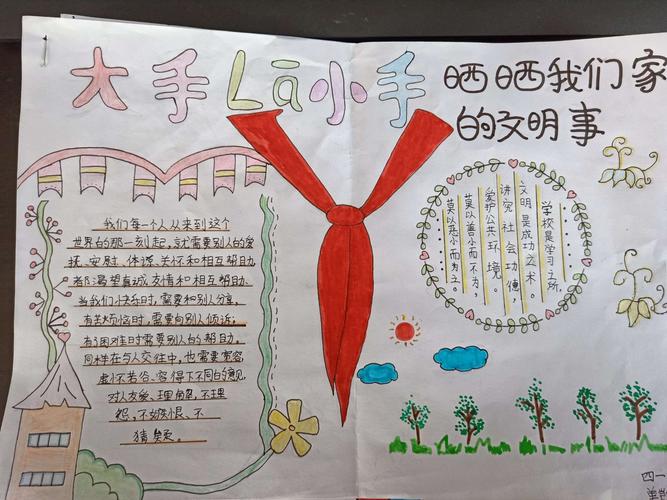 大手Lā小手
晒晒我们家
的文明事
我们每一个人从来到这个
世界的那一刻起,就需要别人的爱
抚、安慰、体谅、关怀和相互帮助,
都渴望真诚友情和相互帮助.
当我们快乐时,需要和别人分享,
有苦烦恼时,需要向别人倾诉;
有困难时需要别人的帮助,
同样在与人交往中,也需要宽容
虚怀若谷、容得下不同的意见,
对人友爱、理解,不埋
怨,不嫉恨、不
猜疑。
学校是学习之所,
文明是成功之术。
讲究社会功德,
爱护公共环境。
莫以善小而不为,
莫以恶小而为之。
四一